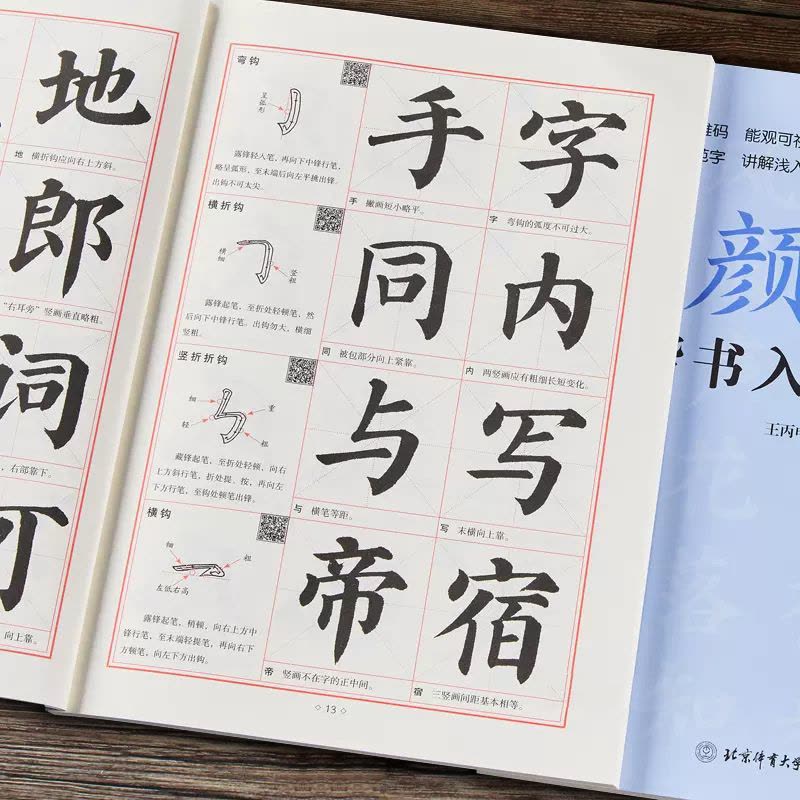 地
地 横折钩应向右上方斜。
郎
“右耳旁”竖画垂直略粗。
词
，右部靠下。
可
向上靠。
弯钩
呈弧形
露锋轻入笔，再向下中锋行笔，
略呈弧形，至末端后向左平挑出锋。
出钩不可太尖。
手
手 撇画短小略平。
字
字 弯钩的弧度不可过大。
横折钩
横细
竖粗
露锋起笔，至折处轻顿笔，然
后向下中锋行笔。出钩勿大，横细
竖粗。
同
同 被包部分向上紧靠。
内
内 两竖画应有粗细长短变化。
竖折折钩
细
重
轻
粗
藏锋起笔，至折处轻顿、向右
上方斜行笔，折处提、按，再向左
下方行笔，至钩处顿笔出锋。
与
与 横笔等距。
写
写 末横向上靠。
横钩
细
粗
左低右高
露锋起笔，稍顿，向右上方中
锋行笔，至末端轻提笔，再向右下
方顿笔，向左下方出钩。
帝
帝 竖画不在字的正中间。
宿
宿 三竖画间距基本相等。
13
维码 能观可视
范字 讲解浅入
颜
楷书入
王丙申
花
落
知
北京体育大学